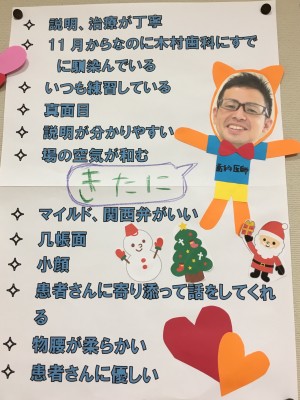 説明、治療が丁寧
11月からなのに木村歯科にすで
に馴染んでいる
いつも練習している
真面目
説明が分かりやすい
場の空気が和む
きたに
マイルド、関西弁がいい
几帳面
小顔
患者さんに寄り添って話をしてくれ
る
物腰が柔らかい
患者さんに優しい